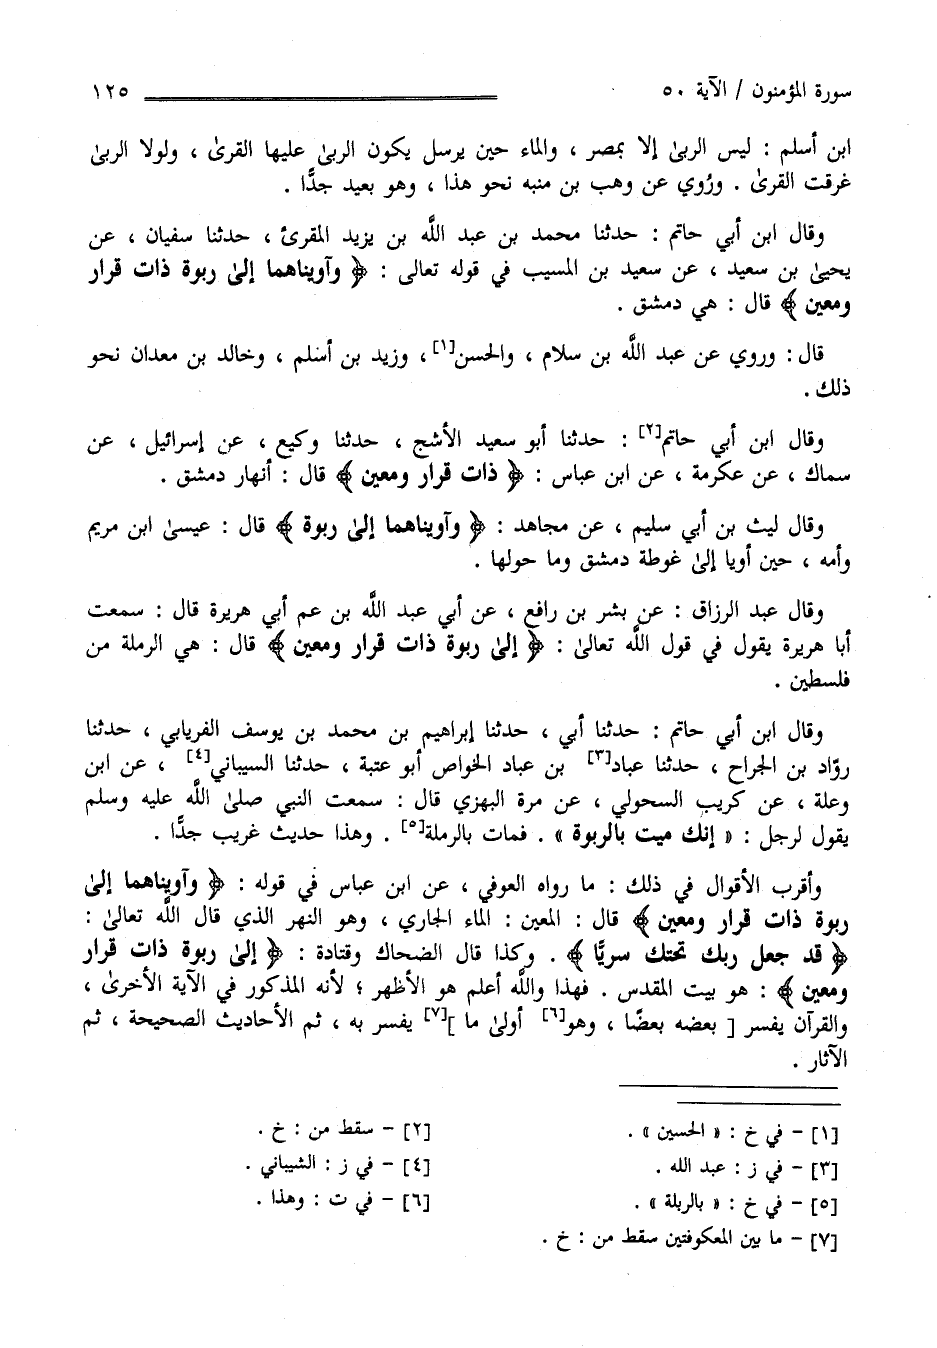 سورة المؤمنون / الآية ٥٠ ١٢٥
ابن أسلم : ليس الربىٰ إلا بمصر ، والماء حين يرسل يكون الربىٰ عليها القرىٰ ، ولولا الربىٰ
غرقت القرىٰ . ورُوي عن وهب بن منبه نحو هذا ، وهو بعيد جدًّا .
وقال ابن أبي حاتم : حدثنا محمد بن عبد اللَّه بن يزيد المقرئ ، حدثنا سفيان ، عن
يحيىٰ بن سعيد ، عن سعيد بن المسيب في قوله تعالى : ﴿ وآويناهما إلىٰ ربوة ذات قرار
ومعين ﴾ قال : هي دمشق .
قال : وروي عن عبد اللَّه بن سلام ، والحسن[١] ، وزيد بن أسلم ، وخالد بن معدان نحو
ذلك .
وقال ابن أبي حاتم[٢] : حدثنا أبو سعيد الأشج ، حدثنا وكيع ، عن إسرائيل ، عن
سماك ، عن عكرمة ، عن ابن عباس : ﴿ ذات قرار ومعين ﴾ قال : أنهار دمشق .
وقال ليث بن أبي سليم ، عن مجاهد : ﴿ وآويناهما إلىٰ ربوة ﴾ قال : عيسىٰ ابن مريم
وأمه ، حين أويا إلىٰ غوطة دمشق وما حولها .
وقال عبد الرزاق : عن بشر بن رافع ، عن أبي عبد اللَّه بن عم أبي هريرة قال : سمعت
أبا هريرة يقول في قول اللَّه تعالىٰ : ﴿ إلىٰ ربوة ذات قرار ومعين ﴾ قال : هي الرملة من
فلسطين .
وقال ابن أبي حاتم : حدثنا أبي ، حدثنا إبراهيم بن محمد بن يوسف الفريابي ، حدثنا
روّاد بن الجراح ، حدثنا عباد[٣] بن عباد الخواص أبو عتبة ، حدثنا السيباني[٤] ، عن ابن
وعلة ، عن كريب السحولي ، عن مرة البهزي قال : سمعت النبي صلىٰ اللَّه عليه وسلم
يقول لرجل : « إنك ميت بالربوة » . فمات بالرملة[٥] . وهذا حديث غريب جدًّا .
وأقرب الأقوال في ذلك : ما رواه العوفي ، عن ابن عباس في قوله : ﴿ وآويناهما إلىٰ
ربوة ذات قرار ومعين ﴾ قال : المعين : الماء الجاري ، وهو النهر الذي قال اللَّه تعالىٰ :
﴿ قد جعل ربك تحتك سريًّا ﴾ . وكذا قال الضحاك وقتادة : ﴿ إلىٰ ربوة ذات قرار
ومعين ﴾ : هو بيت المقدس . فهذا واللَّه أعلم هو الأظهر ؛ لأنه المذكور في الآية الأخرىٰ ،
والقرآن يفسر [ بعضه بعضًا ، وهو[٦] أولىٰ ما ][٧] يفسر به ، ثم الأحاديث الصحيحة ، ثم
الآثار .
[١] - في خ : « الحسين » . [٢] - سقط من : خ .
[٣] - في ز : عبد الله . [٤] - في ز : الشيباني .
[٥] - في خ : « بالربلة » . [٦] - في ت : وهذا .
[٧] - ما بين المعكوفتين سقط من : خ .